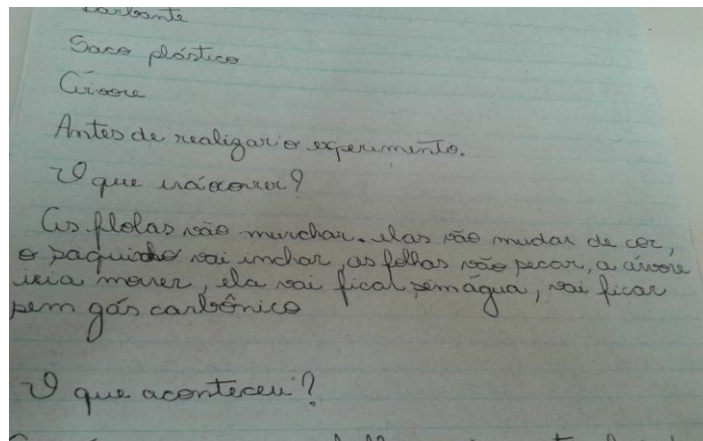 barbante
Saco plástico
Árvore
Antes de realizar o experimento.
O que irá ocorrer?
As flolas vão murchar. elas vão mudar de cor,
o saquinho vai inchar, as folhas vão secar, a árvore
iria morrer, ela vai ficar sem água, vai ficar
sem gás carbônico
O que aconteceu?